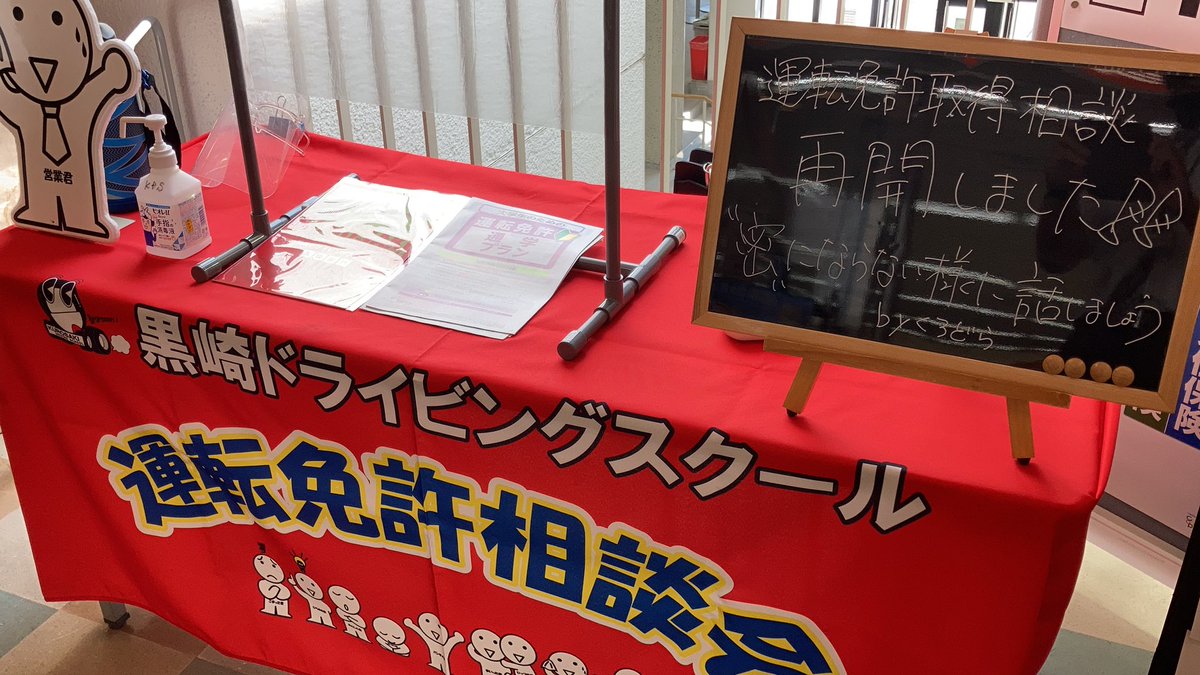 営業君
KDS
ビオレu
手指の
消毒液
運転免許
通学
プラン
運転免許取得相談
再開しました
"密"にならない様に話しましょう
by くろどら
黒崎ドライビングスクール
運転免許相談会
保険